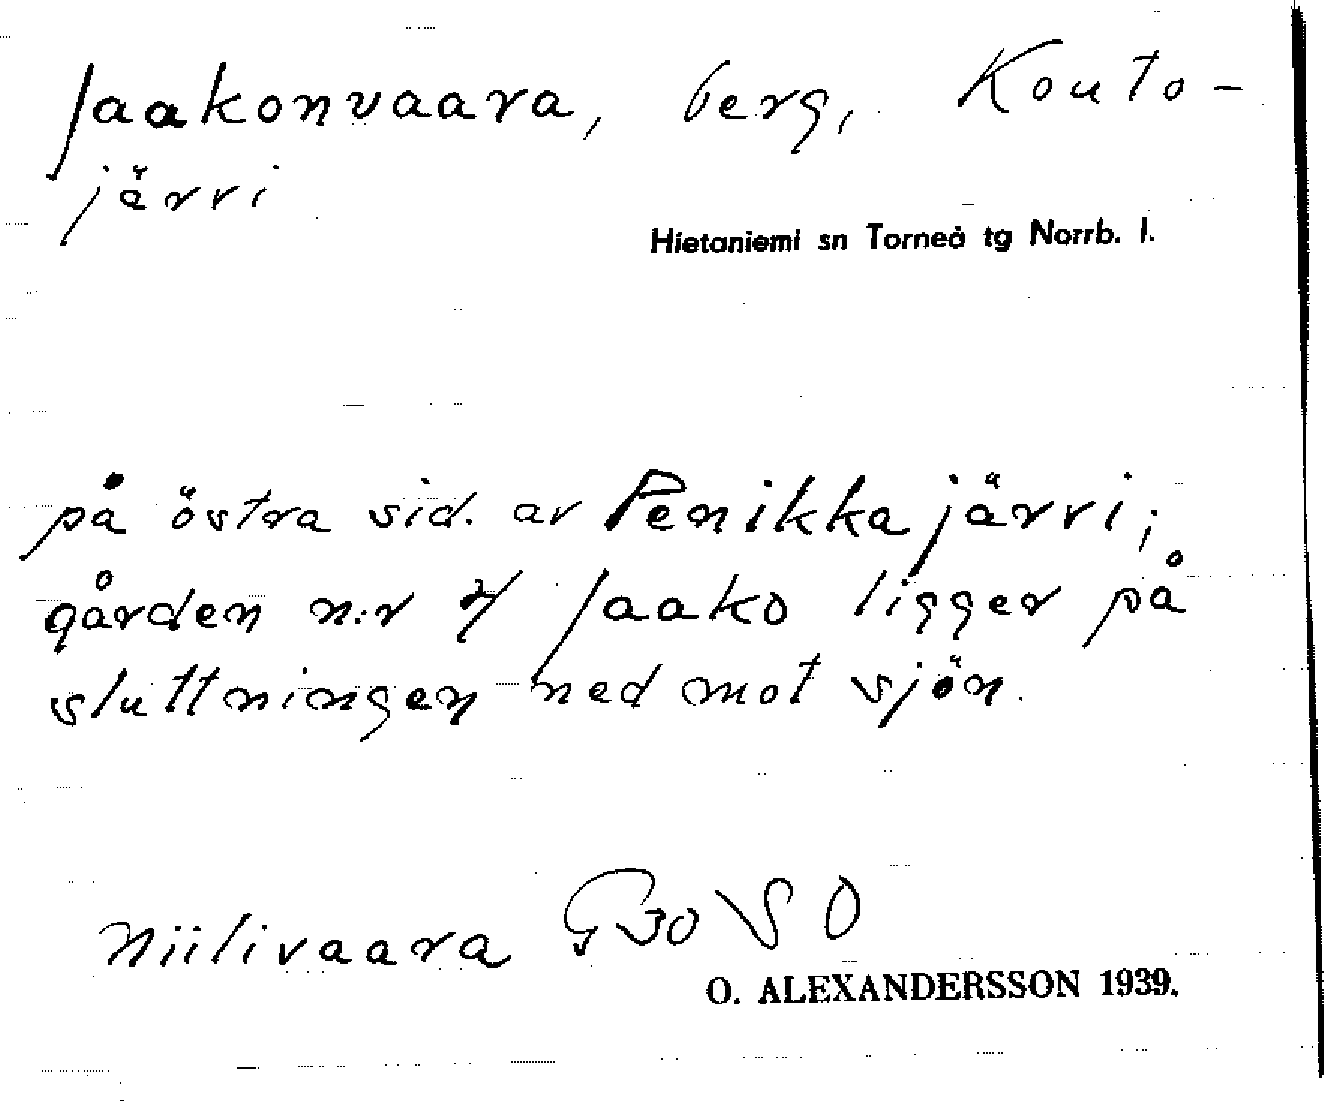 Jaakonvaara, berg, Kouto-
järvi
Hietaniemi sn Torneå tg Norrb. l.
på östra sid. av Penikkajärvi;
gården n:r Jaako ligger på
sluttningen ned mot sjön.
Niilivaara
O. ALEXANDERSSON 1939.